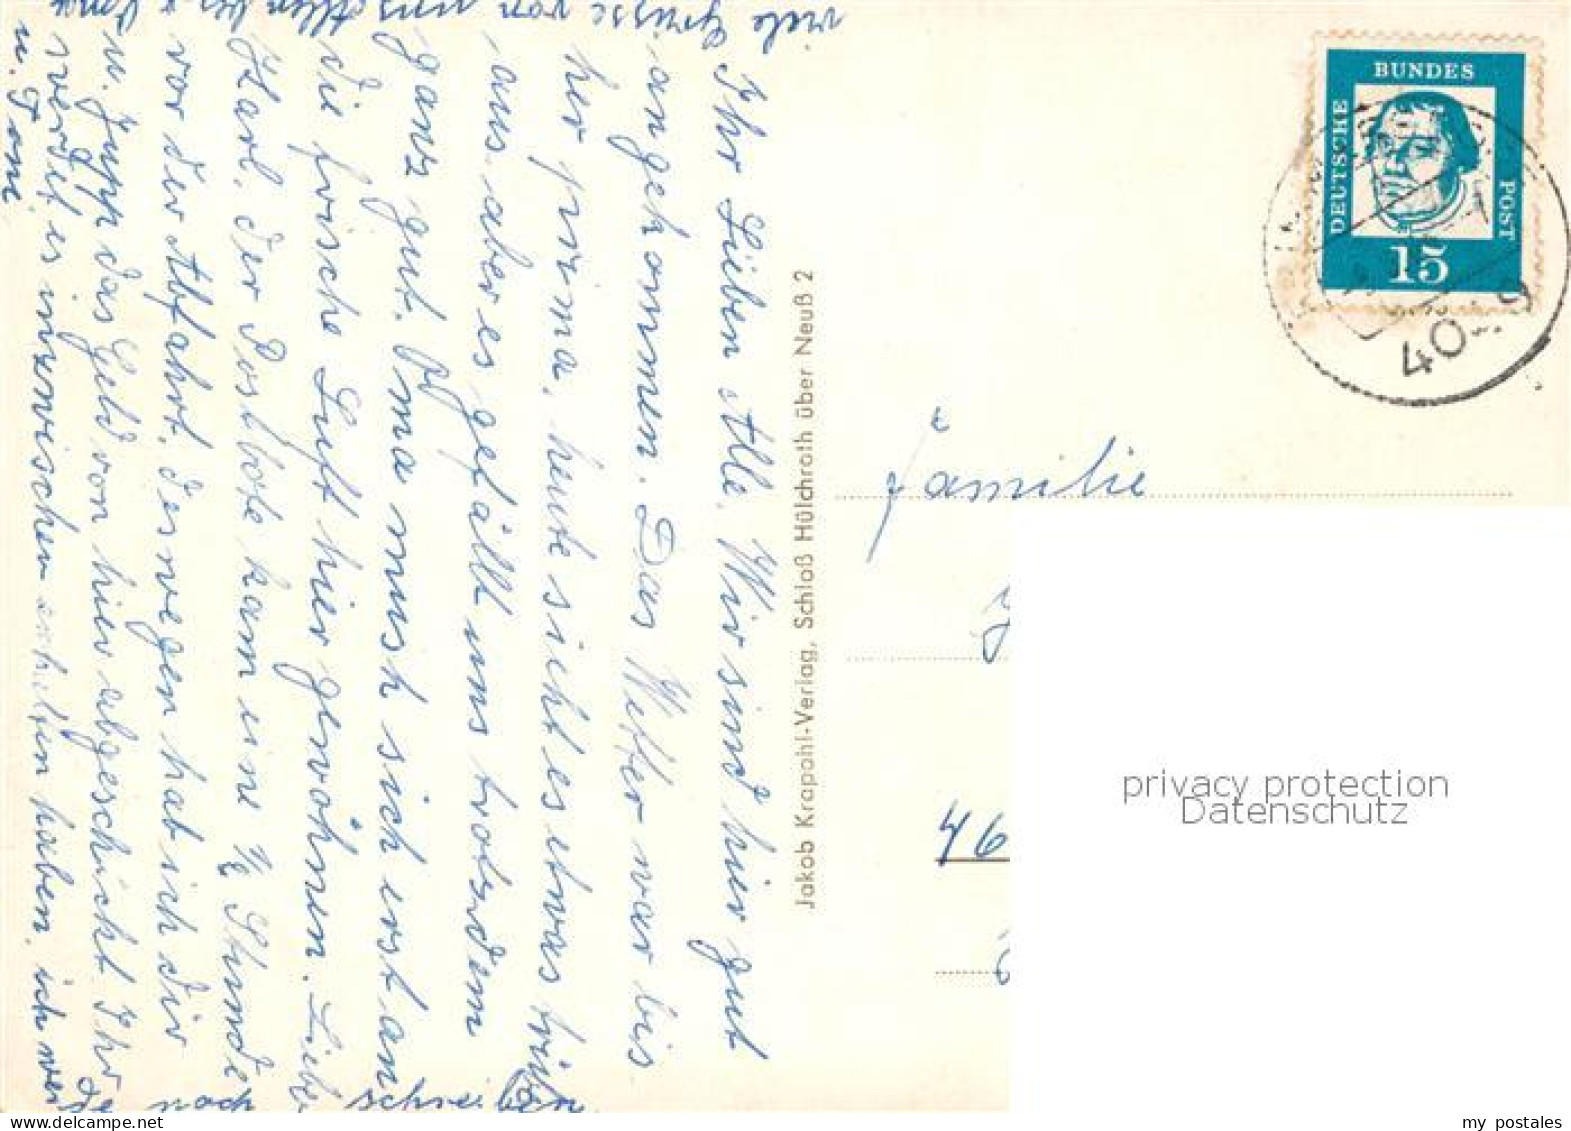 Ihr Lieben Alle. Wir sind hier gut
angekommen. Das Wetter war bis
her prima, heute sieht es etwas trüber
aus aber es gefällt uns trotzdem
ganz gut. Oma mush sich erst an
die frische Luft hier gewöhnen. Lieber
Karl, der Postbote kam eine ½ Stunde
vor der Abfahrt, deswegen hab ich dir
u. Jupp das Geld von hier abgeschickt. Ihr
werdet es inzwischen erhalten haben, ich wer
de noch schreiben
viele Grüsse von uns Allen
u. Toni
Jakob Krapohl-Verlag, Schloß Hülchrath über Neuß 2
DEUTSCHE
BUNDES
POST
15
Familie
46
privacy protection
Datenschutz
delcampe.net
my_postales